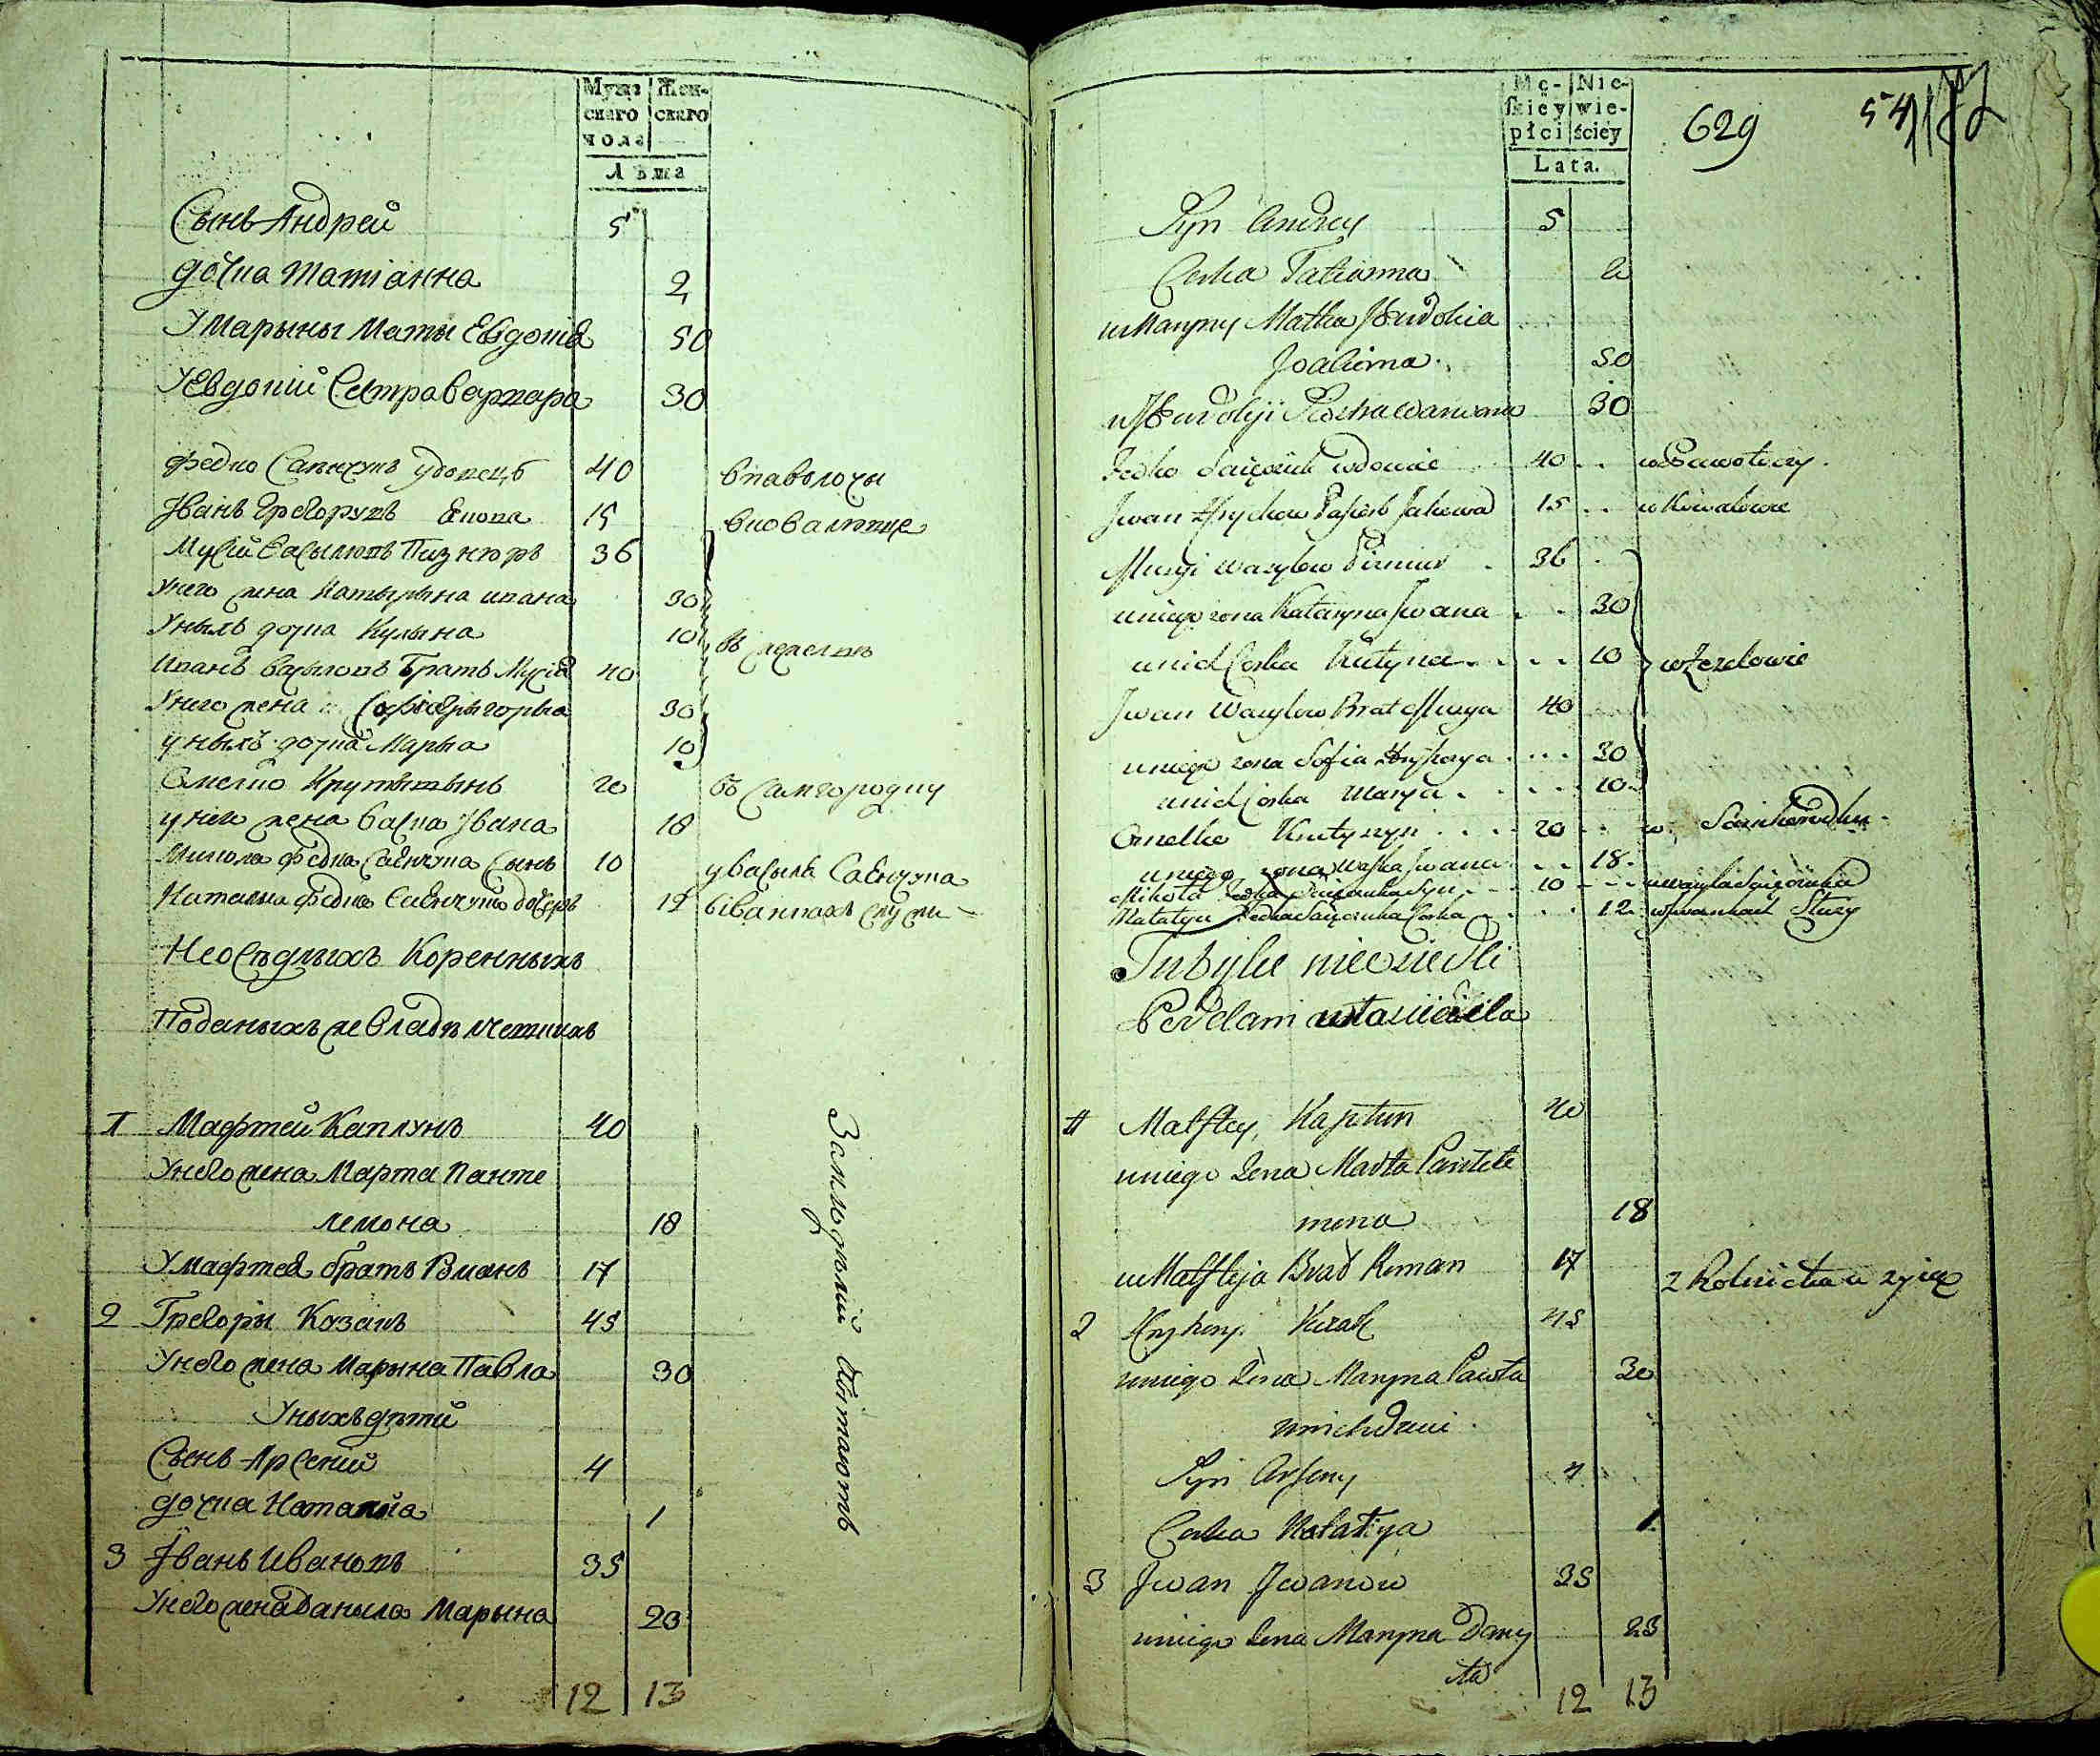 Мужескаго пола
Женскаго
Лѣта
Сынъ Андрей 5
дочка Татіанна 2
У Марыны Маты Евдокія 50
У Евдокіи Сестра Варвара 30
Федко Савчукъ удовец 40 в Паволочы
Іванъ Грегорувъ 15 в Ковалювце
Мусій Васылювъ 36
у него жена Катырына Ивана 30
У ныхъ дочка Кулына 10
Иванъ Васыловъ братъ Мусія 40
У него жена Софія Грыгорыа 30
у ныхъ дочка Марыа 10
Омелко Крутытынъ 20 въ Самгородку
у него жена Васка Івана 18
Микола Федка Савчука Сынъ 10 у Васыля Савчука
Наталка Федка Савчука дочеръ 12 в Іванкахъ служи
Неоседлыхъ Коренныхъ
Поданыхъ не владеючетихъ
1 Мафтей Каплунъ 40
У него жена Марта Панте
лемона 18
У Мафтея братъ Романъ 17
2 Грегоры Козакъ 45
У него жена Марына Павла 30
У ныхъ дѣти
Сынъ Арсеній 4
дочка Наталія 1
3 Іванъ Ивановъ 35
У него жена Даныла Марына 23
12 13
Męskiey płci
Niewieściey
Lata.
629
54
Syn Andrey 5
Corka Tatianna 2
u Maryny Matka Jewdokia
Joakima 50
u Jewdokji Siostra Warwara 30
Fedko Sawczuk wdowiec 40 w Pawołoczy
Jwan Hrychow Pasierb Jakowa 15 w Kowalowce
Musyi Wasylow 36
u niego zona Kataryna Jwana 30
u nich Corka Kulyna 10 w Zerdowie
Jwan Wasylow Brat Musya 40
u niego zona Sofia Hryhorya 30
u nich Corka Marya 10
Omelko Krutyszyn 20 w Samhorodku
u niego zona Waska Jwana 18
Mikola Fedka Sawczuka Syn 10 u Wasyla Sawczuka
Natalya Fedka Sawczuka Corka 12 w Jwankach Sluzy
Tubylce nieosiedli
1 Malftey Kapłun 40
u niego Zena Marta Pantele
mona 18
u Malfteja Brat Roman 17 z Rolnictwa zyią
2 Hryhory Kozak 45
u niego Zena Maryna Pawła 30
u nich dzieci
Syn Arseny 4
Corka Natalya 1
3 Jwan Jwanow 35
u niego Zena Maryna Dany
ła 23
12 13